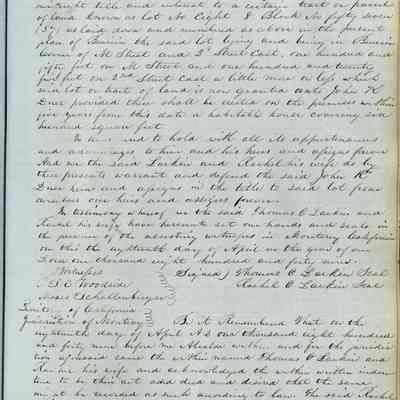 right title and interest to a certain tract or parcel
of land known as Lot No Eight 8 Block No fifty seven
(57) as laid down and numbered as above in the present
plan of Benicia the said lot lying and being in Benicia
corner of M Street and 2nd Street East, one hundred and
fifty feet on M Street and one hundred and twenty
five feet on 2nd Street East a little more or less which
said lot or tract of land is now granted unto John K
Duer provided there shall be erected on the premises within
five years from this date a habitable house covering six
hundred square feet
To have and to hold with all its appurtenances
and advantages to him and his heirs and assigns forever
And we the said Larkin and Rachel his wife do by
these presents warrant and defend the said John K
Duer heirs and assigns in the title to said lot from
ourselves our heirs and assigns forever.
In testimony whereof we the said Thomas O Larkin and
Rachel his wife have hereunto set our hands and seals in
the presence of the attesting witnesses in Monterey California
on this the eighteenth day of April in the year of our
Lord one thousand eight hundred and forty nine.
Witnesses (Signed) Thomas O Larkin Seal
S E Woodside Rachel O Larkin Seal
Moses Schallenberger
Territory of California
Jurisdiction of Monterey Be it Remembered That on the
eighteenth day of April A.D one thousand eight hundred
and forty nine before me Alcalde within and for the jurisdic
tion aforesaid came the within named Thomas O Larkin and
Rachel his wife and acknowledged the within written inden
ture to be their act and deed and desired that the same
might be recorded as such according to law. The said Rachel